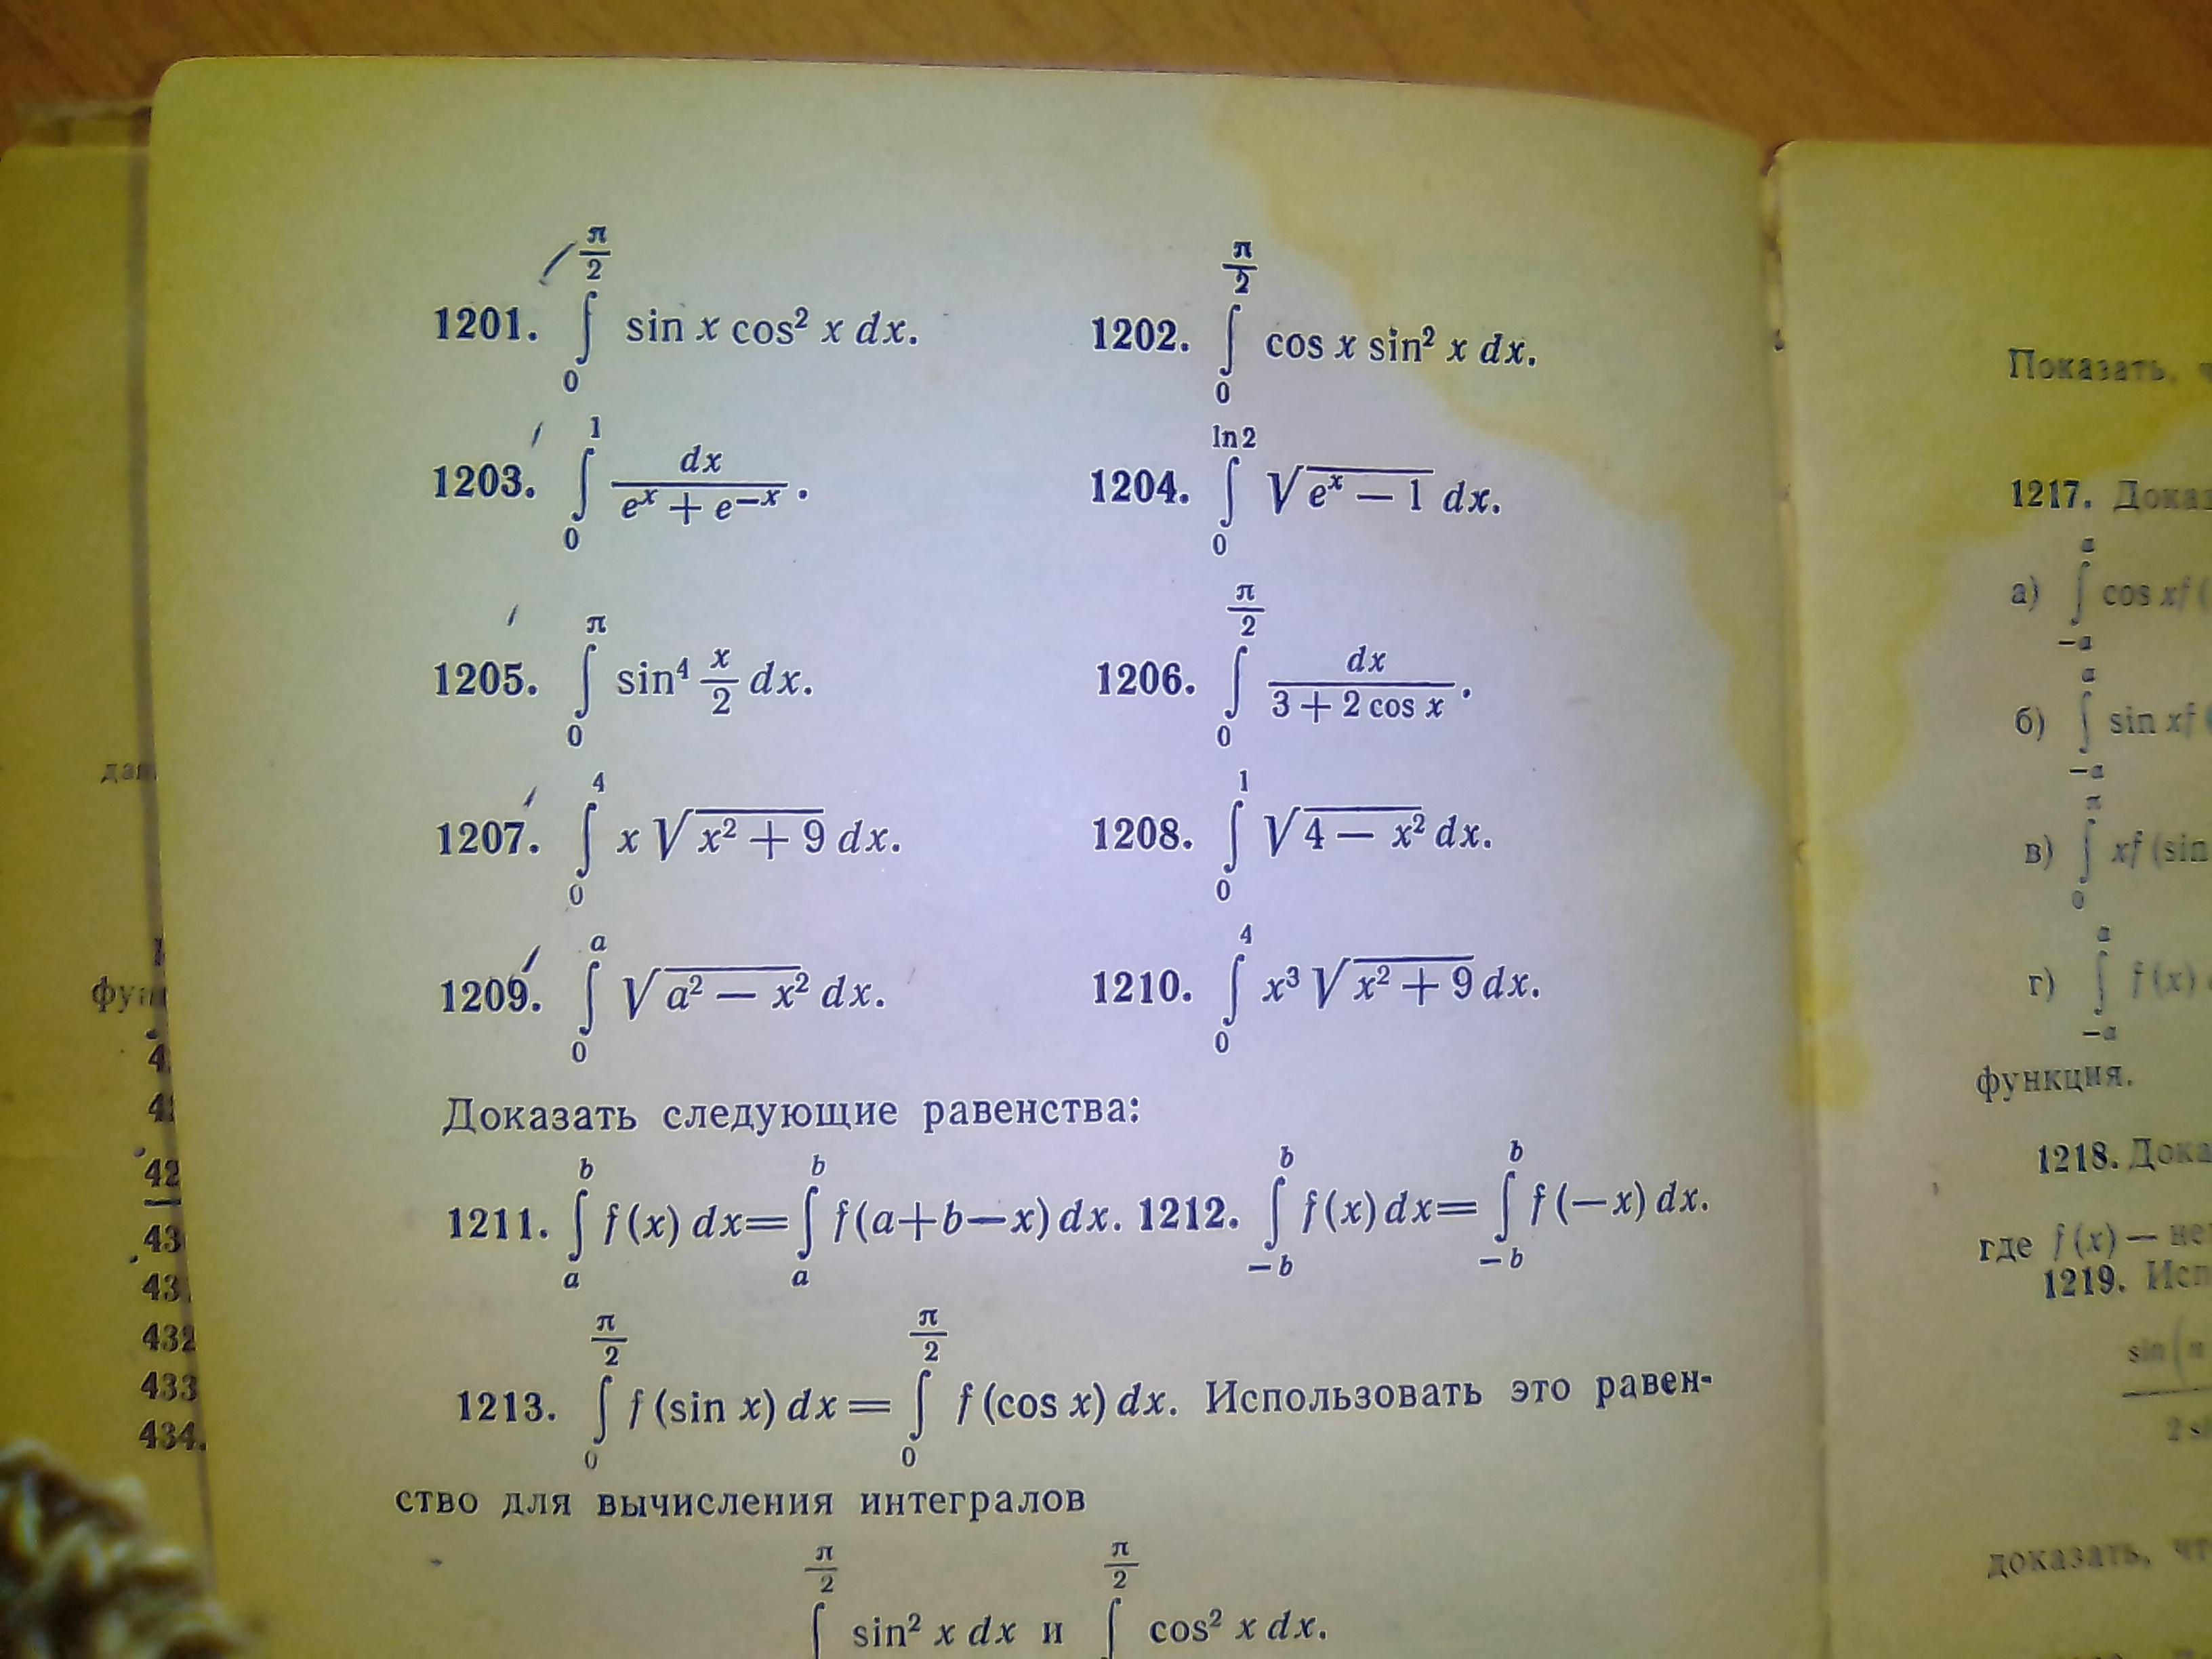 1201. ∫₀^{π/2} sin x cos² x dx. 1202. ∫₀^{π/2} cos x sin² x dx.
1203. ∫₀^{1} dx/(eˣ + e⁻ˣ). 1204. ∫₀^{ln 2} √(eˣ — 1) dx.
1205. ∫₀^{π} sin⁴ x/2 dx. 1206. ∫₀^{π/2} dx/(3 + 2 cos x).
1207. ∫₀^{4} x √(x² + 9) dx. 1208. ∫₀^{1} √(4 — x²) dx.
1209. ∫₀^{a} √(a² — x²) dx. 1210. ∫₀^{4} x³ √(x² + 9) dx.
Доказать следующие равенства:
1211. ∫ₐ^{b} f (x) dx = ∫ₐ^{b} f (a+b—x) dx. 1212. ∫₋b^{b} f (x) dx = ∫₋b^{b} f (—x) dx.
1213. ∫₀^{π/2} f (sin x) dx = ∫₀^{π/2} f (cos x) dx. Использовать это равен-
ство для вычисления интегралов
∫^{π/2} sin² x dx и ∫^{π/2} cos² x dx.
Показать,
1217.
а) ∫₋ₐ^{a} cos xf (
б) ∫₋ₐ^{a} sin xf
в) ∫₀^{π} xf (sin
г) ∫₋ₐ^{a} f (x)
функция.
1218.
где f (x) —
1219.
sin (
доказать,
432
433
434.